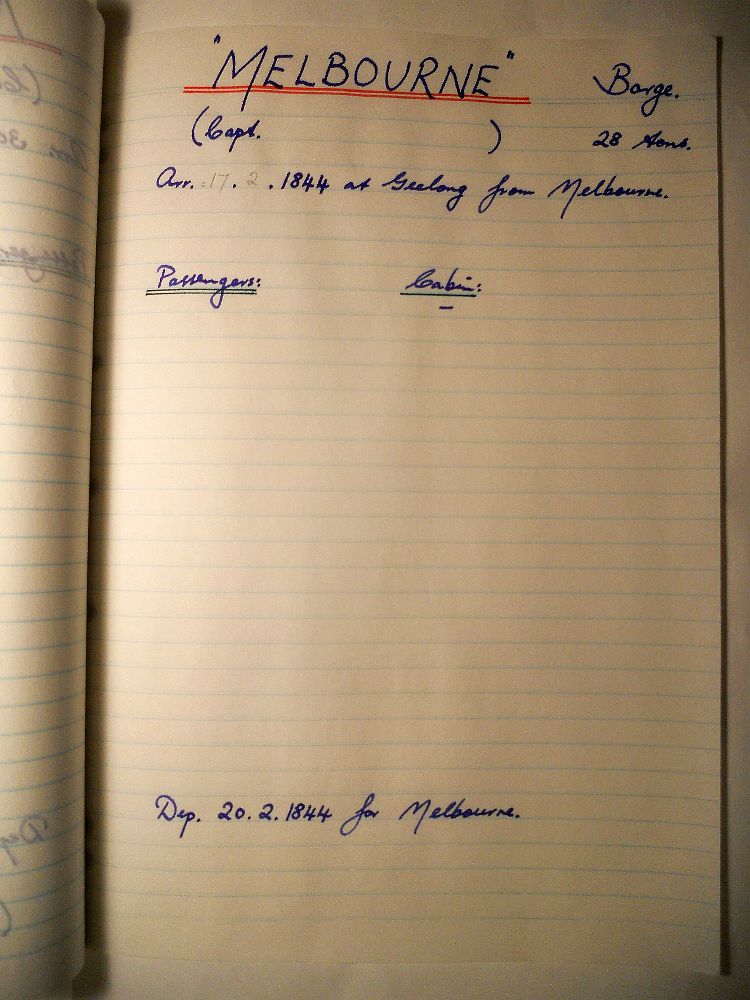 "MELBOURNE" Barge.
(Capt. ) 28 tons.
Arr. 17.2.1844 at Geelong from Melbourne.
Passengers: Cabin:
–
Dep. 20.2.1844 for Melbourne.